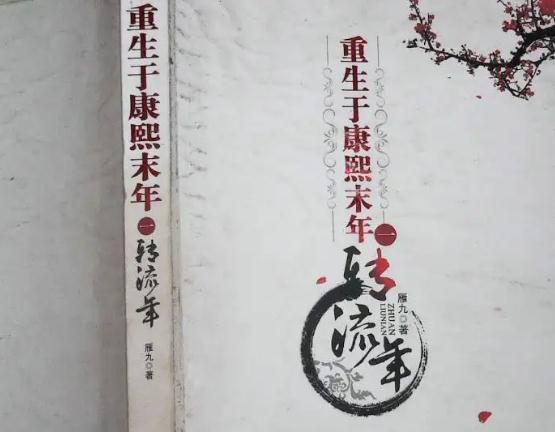 重生于康熙末年
一
转流年
雁九◎著
重生于康熙末年
一
转流年
雁九◎著
ZHUAN
LIUNIAN